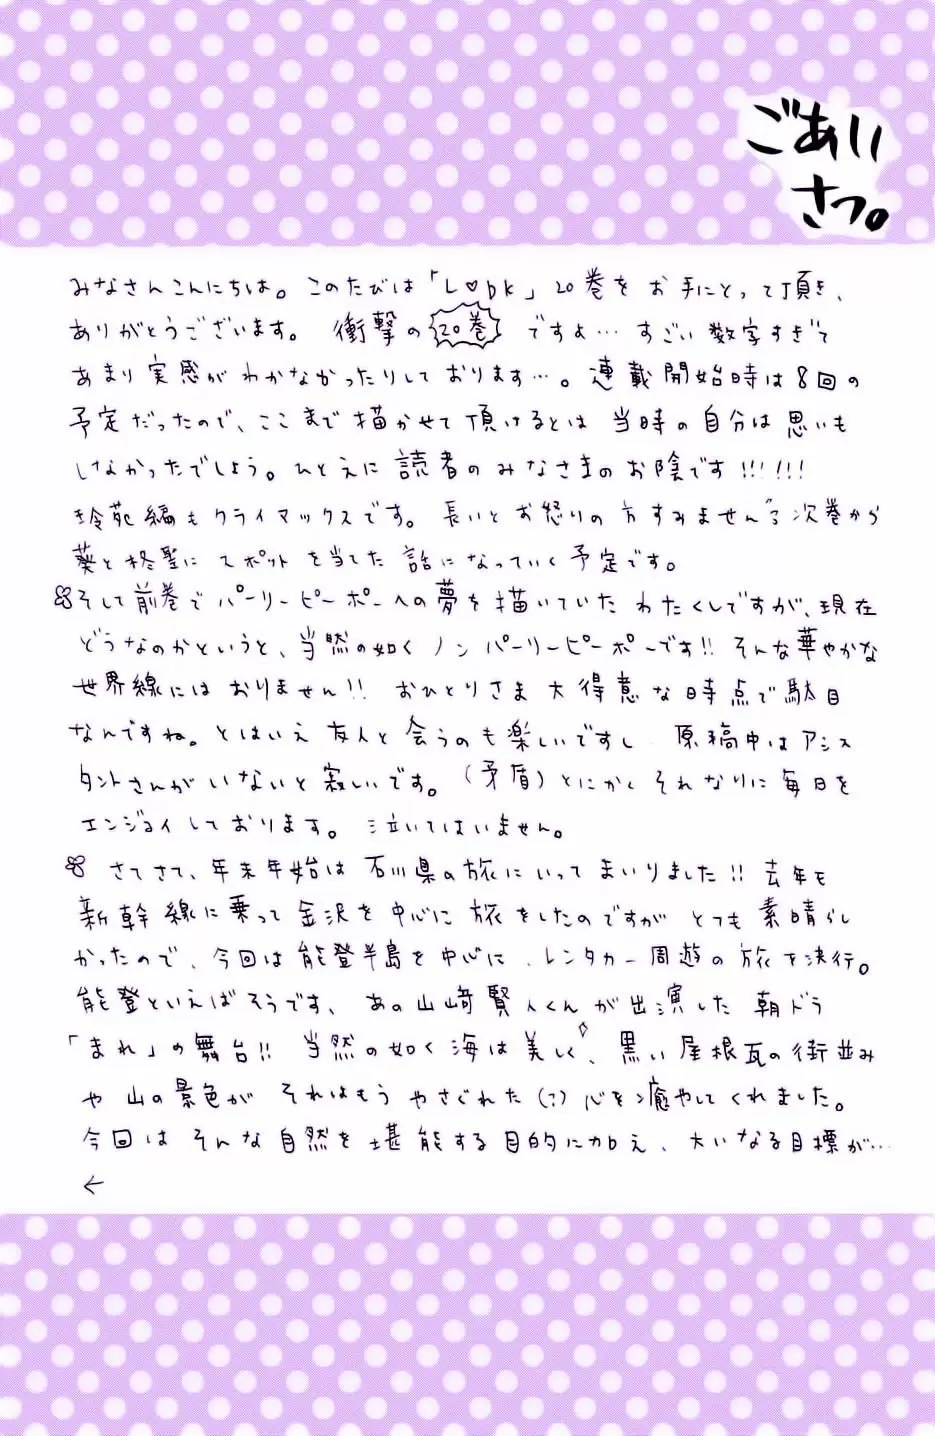 ごあいさつ。
みなさんこんにちは。このたびは「L♡DK」20巻をお手にとって頂き、
ありがとうございます。衝撃の20巻ですよ…すごい数字すぎて
あまり実感がわかなかったりしております…。連載開始時は8回の
予定だったので、ここまで描かせて頂けるとは当時の自分は思いも
しなかったでしょう。ひとえに読者のみなさまのお陰です!!!!!!
玲苑編もクライマックスです。長いとお怒りの方すみません 次巻から
葵と柊聖にスポットを当てた話になっていく予定です。
そして前巻でパーリーピーポーへの夢を描いていたわたくしですが、現在
どうなのかというと、当然の如くノンパーリーピーポーです!!そんな華やかな
世界線にはおりません!!おひとりさま大得意な時点で駄目
なんですね。とはいえ友人と会うのも楽しいですし、原稿中はアシス
タントさんがいないと寂しいです。(矛盾)とにかくそれなりに毎日を
エンジョイしております。泣いてはいません。
さてさて、年末年始は石川県の旅にいってまいりました!!去年も
新幹線に乗って金沢を中心に旅をしたのですがとっても素晴らし
かったので、今回は能登半島を中心に、レンタカー周遊の旅を決行。
能登といえばそうです、あの山﨑賢人くんが出演した朝ドラ
「まれ」の舞台!!当然の如く海は美しく、黒い屋根瓦の街並み
や山の景色がそれはもうやさぐれた(?)心を癒やしてくれました。
今回はそんな自然を堪能する目的に加え、大いなる目標が…
←